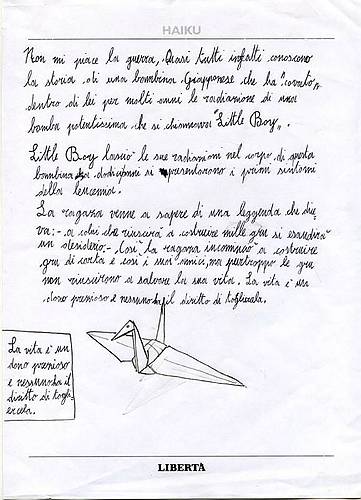 HAIKU
Non mi piace la guerra. Quasi tutti infatti conoscono
la storia di una bambina Giapponese che ha "covato"
dentro di lei per molti anni le radiazione di una
bomba potentissima che si chiamava "Little Boy".
Little Boy lasciò le sue radiazioni nel corpo di questa
bambina a dodicenne si presentarono i primi sintomi
della leucemia.
La ragazza venne a sapere di una leggenda che dice
va:- a colui che riuscirà a costruire mille gru si esaudirà
un desiderio.- Così la ragazza incominciò a costruire
gru di carta e così i suoi amici, ma purtroppo le gru
non riuscirono a salvare la sua vita. La vita è un
dono prezioso e nessuno ha il diritto di togliercela.
La vita è un
dono prezioso
e nessuno ha il
diritto di togli-
ercela.
LIBERTÀ